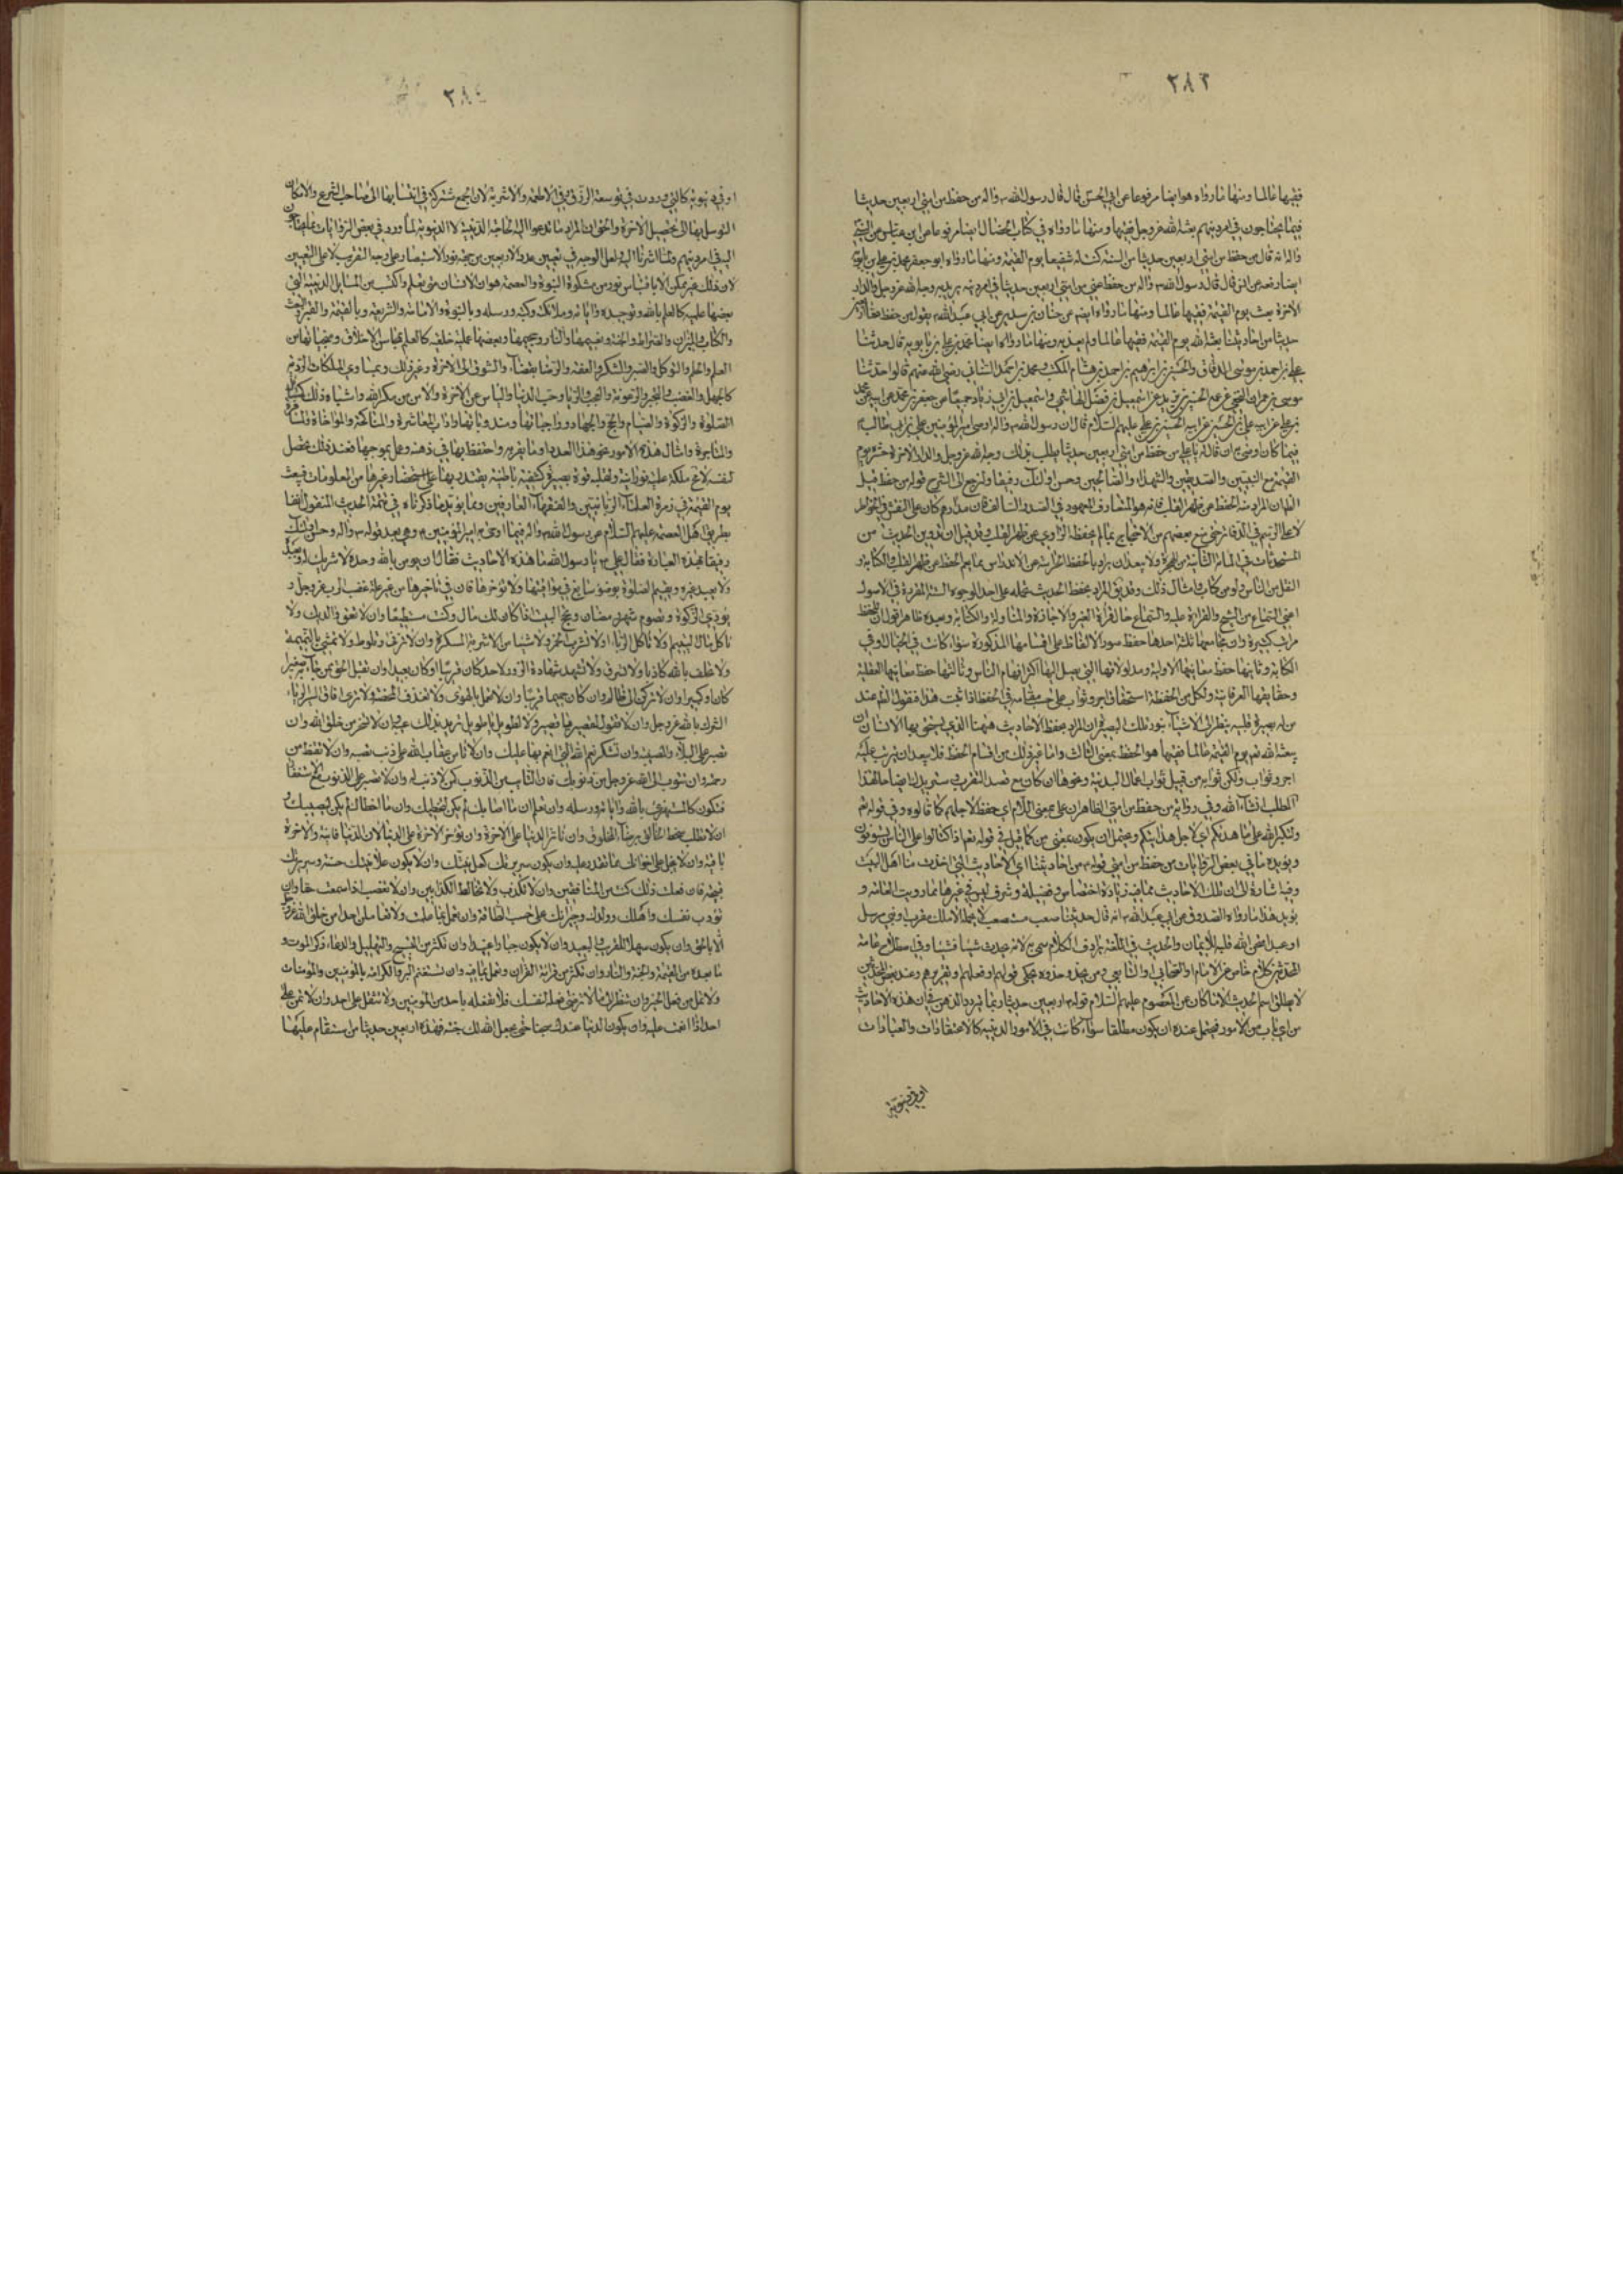 ٢٨٣
فقيها عالما ومنها ما رواه هو ايضا مرفوعا عن ابي الحسن قال قال رسول الله ص واله من حفظ من امتي اربعين حديثا
فيما يحتاجون في امر دينهم بعثه الله عز وجل فقيها ومنها ما رواه في كتاب الخصال ايضا مرفوعا عن ابن عباس عن النبي
واله انه قال من حفظ من امتي اربعين حديثا من السنة كنت له شفيعا يوم القيمة ومنها ما رواه ابو جعفر محمد بن علي بن بابويه
ايضا رفعه عن انس قال قال رسول الله ص واله من حفظ عني من امتي اربعين حديثا في امر دينه يريد به وجه الله عز وجل والدار
الاخرة بعثه يوم القيمة فقيها عالما ومنها ما رواه ايضا عن حنان بن سدير عن ابي عبد الله ع يقول من حفظ عنا اربعين
حديثا من احاديثنا بعثه الله يوم القيمة فقيها عالما ولم يعذبه ومنها ما رواه ايضا محمد بن علي بن بابويه قال حدثنا
علي بن احمد بن موسى الدقاق والحسين بن ابرهيم بن احمد بن هشام المكتب ومحمد بن احمد السناني رضي الله عنهم قالوا حدثنا
موسى بن عمران النخعي عن عمه الحسين بن يزيد عن اسمعيل بن فضل الهاشمي واسمعيل بن ابي زياد جميعا عن جعفر بن محمد عن ابيه محمد
بن علي عن ابيه علي بن الحسين عن ابيه الحسين بن علي عليهم السلام قال ان رسول الله ص واله اوصى امير المؤمنين علي بن ابي طالب ع
فيما كان وصى به ان قال له يا علي من حفظ من امتي اربعين حديثا يطلب بذلك وجه الله عز وجل والدار الاخرة حشره يوم
القيمة مع النبيين والصديقين والشهداء والصالحين وحسن اولئك رفيقا ولنرجع الى الشرح قوله من حفظ قيل
الظ ان المراد منه الحفظ عن ظهر القلب فانه هو المتعارف المعهود في الصدر السالف فان مدارهم كان على النقش في الخواطر
لا على الرسم في الدفاتر حتى منع بعضهم من الاحتجاج بما لم يحفظه الراوي عن ظهر القلب وقد قيل ان تدوين الحديث من
المستحدثات في المائة الثانية من الهجرة ولا يبعد ان يراد بالحفظ الحراسة عن الاندراس بما يعم الحفظ عن ظهر القلب والكتابة و
النقل من الناس ولو من كتاب وامثال ذلك وقد يق المراد بحفظ الحديث تحمله على احد الوجوه الستة المقررة في الاصول
اعني السماع من الشيخ والقراءة عليه والسماع حال قراءة الغير والاجازة والمناولة والكتابة وبعيده ظاهر اقول ان للحفظ
مراتب كثيرة وان مجامعها ثلثة احدها حفظ صور الالفاظ على اقسامها المذكورة سواء كانت في الخيال او في
الكتابة وثانيها حفظ معانيها الاولية ومدلولاتها التي يصل اليها اكثر افهام الناس وثالثها حفظ معانيها العقلية
وحقايقها العرفانية ولكل من الحفظة استحقاق اجر وثواب على حسب مقامه في الحفظ اذا ثبت هذا فنقول الظ عند
من له بصيرة قلبية ينظر الى الاشياء بنور تلك البصيرة ان المراد بحفظ الاحاديث ههنا الذي يستحق بها الانسان ان
يبعثه الله تعم يوم القيمة عالما فقيها هو الحفظ بمعنى الثالث واما غير ذلك من اقسام الحفظ فلا يبعد ان يترتب عليه
اجر وثواب ولكن ثوابه من قبيل ثواب اعمال البدنية ونحوها ان كان مع قصد التقرب وسنزيدك ايضاحا لهذا
المطلب انشاء الله وفي رواية من حفظ من امتي الظاهر ان على بمعنى اللام اي حفظ لاجلهم كما قالوه في قوله تعم
ولتكبروا الله على ما هديكم اي لاجل هدايتكم ويحتمل ان يكون بمعنى من كما قيل في قوله تعم اذا اكتالوا على الناس يستوفون
ويؤيده ما في بعض الروايات من حفظ من امتي قوله من احاديثنا اي الاحاديث التي اخذت منا اهل البيت
وفيه اشارة الى ان تلك الاحاديث مما فيه زيادة اختصاص وفضيلة وشرف ليس في غيرها مما رويت العامة و
يؤيد هذا ما رواه الصدوق عن ابي عبد الله ع انه قال حديثنا صعب مستصعب لا يحتمله الا ملك مقرب او نبي مرسل
او عبد امتحن الله قلبه للايمان والحديث في اللغة يرادف الكلام سمي به لانه يحدث شيئا فشيئا وفي اصطلاح عامة
المحدثين كلام خاص عن الامام او الصحابي او التابعي ومن يحذو حذوه يحكي قولهم او فعلهم او تقريرهم وعند بعض المحدثين
لا يطلق اسم الحديث الا ما كان عن المعصوم عليهم السلام قوله اربعين حديثا ربما يتردد الذهن في ان هذه الاحاديث
من اي باب من الامور فيحتمل عنده ان يكون مطلقا سواء كانت في الامور الدينية كالاعتقادات والعبادات
او في دنيوية
٢٨٤
او في دنيوية كالتي وردت في توسعة الرزق وفي الاطعمة والاشربة لان الجمع مشتركة في انتسابها الى صاحب الشرع والامكان
التوسل بها الى تحصيل الاخرة والحق ان المراد ما تدعوا اليه الحاجة الدينية لا الدنيوية لما ورد في بعض الروايات مما يحتاجون
اليه في امر دينهم وكما اشرنا اليه لعل الوجه في تعيين عدد الاربعين من جهة نور الاستبصار وعلى وجه التقريب لا على التعيين
لان ذلك غير ممكن الا باقتباس نور من مشكوة النبوة والعصمة هو ان الانسان متى تعلم واكتسب من المسايل الدينية التي
بعضها علمية كالعلم بالله وتوحيده واياته وملائكته وكتبه ورسله وبالنبوة والامامة والشريعة وبالقيمة والقبر والبعث
والكتاب والميزان والصراط والجنة ونعيمها والنار وجحيمها وبعضها عملية خلقية كالعلم بمحاسن الاخلاق ومنجياتها من
العلم والحلم والتوكل والصبر والشكر والعفة والرضا بقضاء والشوق الى الاخرة وغير ذلك وبمساوي الملكات الردية
كالجهل والغضب والتجبر والرعونة والعجب والريا وحب الدنيا والياس عن الاخرة والامن من مكر الله واشباه ذلك
الصلوة والزكوة والصيام والحج والجهاد وواجباتها ومندوباتها واداب المعاشرة والمناكحة والمواخاة والمساورة
والمتاجرة وامثال هذه الامور نحو هذا العدد او ما يقرب واحتفظ بها في ذهنه وعمل بموجبها فعند ذلك يحصل
لنفسه لا مح ملكة علمية نورانية ولقلبه قوة بصيرة كشفية باطنية يقتدر بها على استحضار غيرها من المعلومات فيبعث
يوم القيمة في زمرة العلماء الربانيين والفقهاء العارفين ومما يؤيد ما ذكرناه في تتمة الحديث المنقول ايضا
بطريق اهل العصمة عليهم السلام عن رسول الله ص واله فيما اوصى به امير المؤمنين ع وهي بعد قوله ص واله وحسن اولئك
رفيقا بهذه العبارة فقال علي ع يا رسول الله ما هذه الاحاديث فقال ان يؤمن بالله وحده لا شريك له وتعبده
ولا تعبد غيره وتقيم الصلوة بوضوء سابغ في مواقيتها ولا تؤخرها فان في تاخيرها من غير علة غضب الرب عز وجل و
تؤدي الزكوة وتصوم شهر رمضان وتحج البيت اذا كان لك مال وكنت مستطيعا وان لا تعق والديك ولا
تاكل مال اليتيم ولا تاكل الربا ولا تشرب الخمر ولا شيئا من الاشربة المسكرة وان لا تزني ولا تلوط ولا تمشي بالنميمة
ولا تحلف بالله كاذبا ولا تسرق ولا تشهد شهادة الزور لاحد كان قريبا او كان بعيدا وان تقبل الحق ممن جاء به صغيرا
كان او كبيرا وان لا تركن الى ظالم وان كان حميما قريبا وان لا تعمل بالهوى ولا تقذف المحصنة ولا ترائي فان ايسر الرياء
الشرك بالله عز وجل وان لا تقول لقصير يا قصير ولا لطويل يا طويل تريد بذلك عيبه وان لا تسخر من خلق الله وان
تصبر على البلاء والمصيبة وان تشكر نعم الله التي انعم بها عليك وان لا تامن عقاب الله على ذنب تصيبه وان لا تقنط من
رحمته وان تتوب الى الله عز وجل من ذنوبك فان التائب من الذنوب كمن لا ذنب له وان لا تصر على الذنوب مع الاستغفار
فتكون كالمستهزئ بالله واياته ورسله وان تعلم ان ما اصابك لم يكن ليخطيك وان ما اخطاك لم يكن ليصيبك و
ان لا تطلب سخط الخالق برضاء المخلوق وان لا تؤثر الدنيا على الاخرة وان تؤثر الاخرة على الدنيا لان الدنيا فانية والاخرة
باقية وان لا تبخل على اخوانك مما تقدر عليه وان يكون سريرتك كعلانيتك وان لا يكون علانيتك حسنة وسريرتك
قبيحة فان فعلت ذلك كنت من المنافقين وان لا تكذب ولا تخالط الكذابين وان لا تغضب اذا سمعت حقا وان
تؤدب نفسك واهلك وولدك وجيرانك على حسب الطاقة وان تعمل بما علمت ولا تعاملن احدا من خلق الله عز وجل
الا بالحق وان يكون سهلا للقريب والبعيد وان لا يكون جبارا عنيدا وان تكثر من التسبيح والتهليل والدعاء وذكر الموت و
ما بعده من القيمة والجنة والنار وان تكثر من قراءة القران وتعمل بما فيه وان تستغنم البر والكرامة بالمؤمنين والمؤمنات
ولا تمل من فعل الخير وان تنظر الى ما لا ترضى فعله لنفسك فلا تفعله باحد من المؤمنين ولا تثقل على احد وان لا تمن على
احد اذا انعمت عليه وان يكون الدنيا عندك سجنا حتى يجعل الله لك جنة فهذه اربعين حديثا من استقام عليها